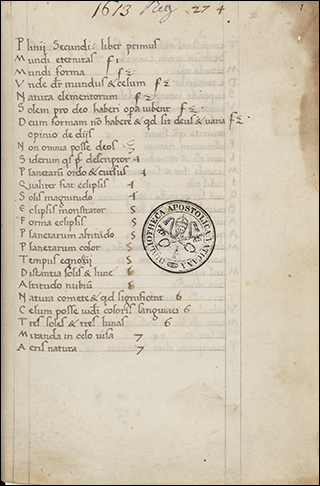 1613 Reg 274
Plinij Secundi: liber primus
Mundi eternitas f 1
Mundi forma f 2
Vnde dr mundus & celum f 2
Natura elementorum f 2
Solem pro deo haberi opa iubent f 2
Deum formam nō habere & qd sit deus & uaria f 2
opinio de dijs
Non omnia posse deos 3
Siderum descriptor 4
Planetarū ordo & cursus 4
Qualiter fiat eclipsis 4
Solis magnitudo 4
Eclipsis monstrator 5
Forma eclipsis 5
Planetarum altitudo 5
Planetarum color 5
Tempus eqnoxij 5
Distantia solis & lune 6
Altitudo nubiū 6
Natura comete & qd significent 6
Celum posse uideri coloris sanguinei 6
Tres soles & tres lunas 6
Miranda in celo uisa 7
Aeris natura 7
BIBLIOTHECA APOSTOLICA VATICANA